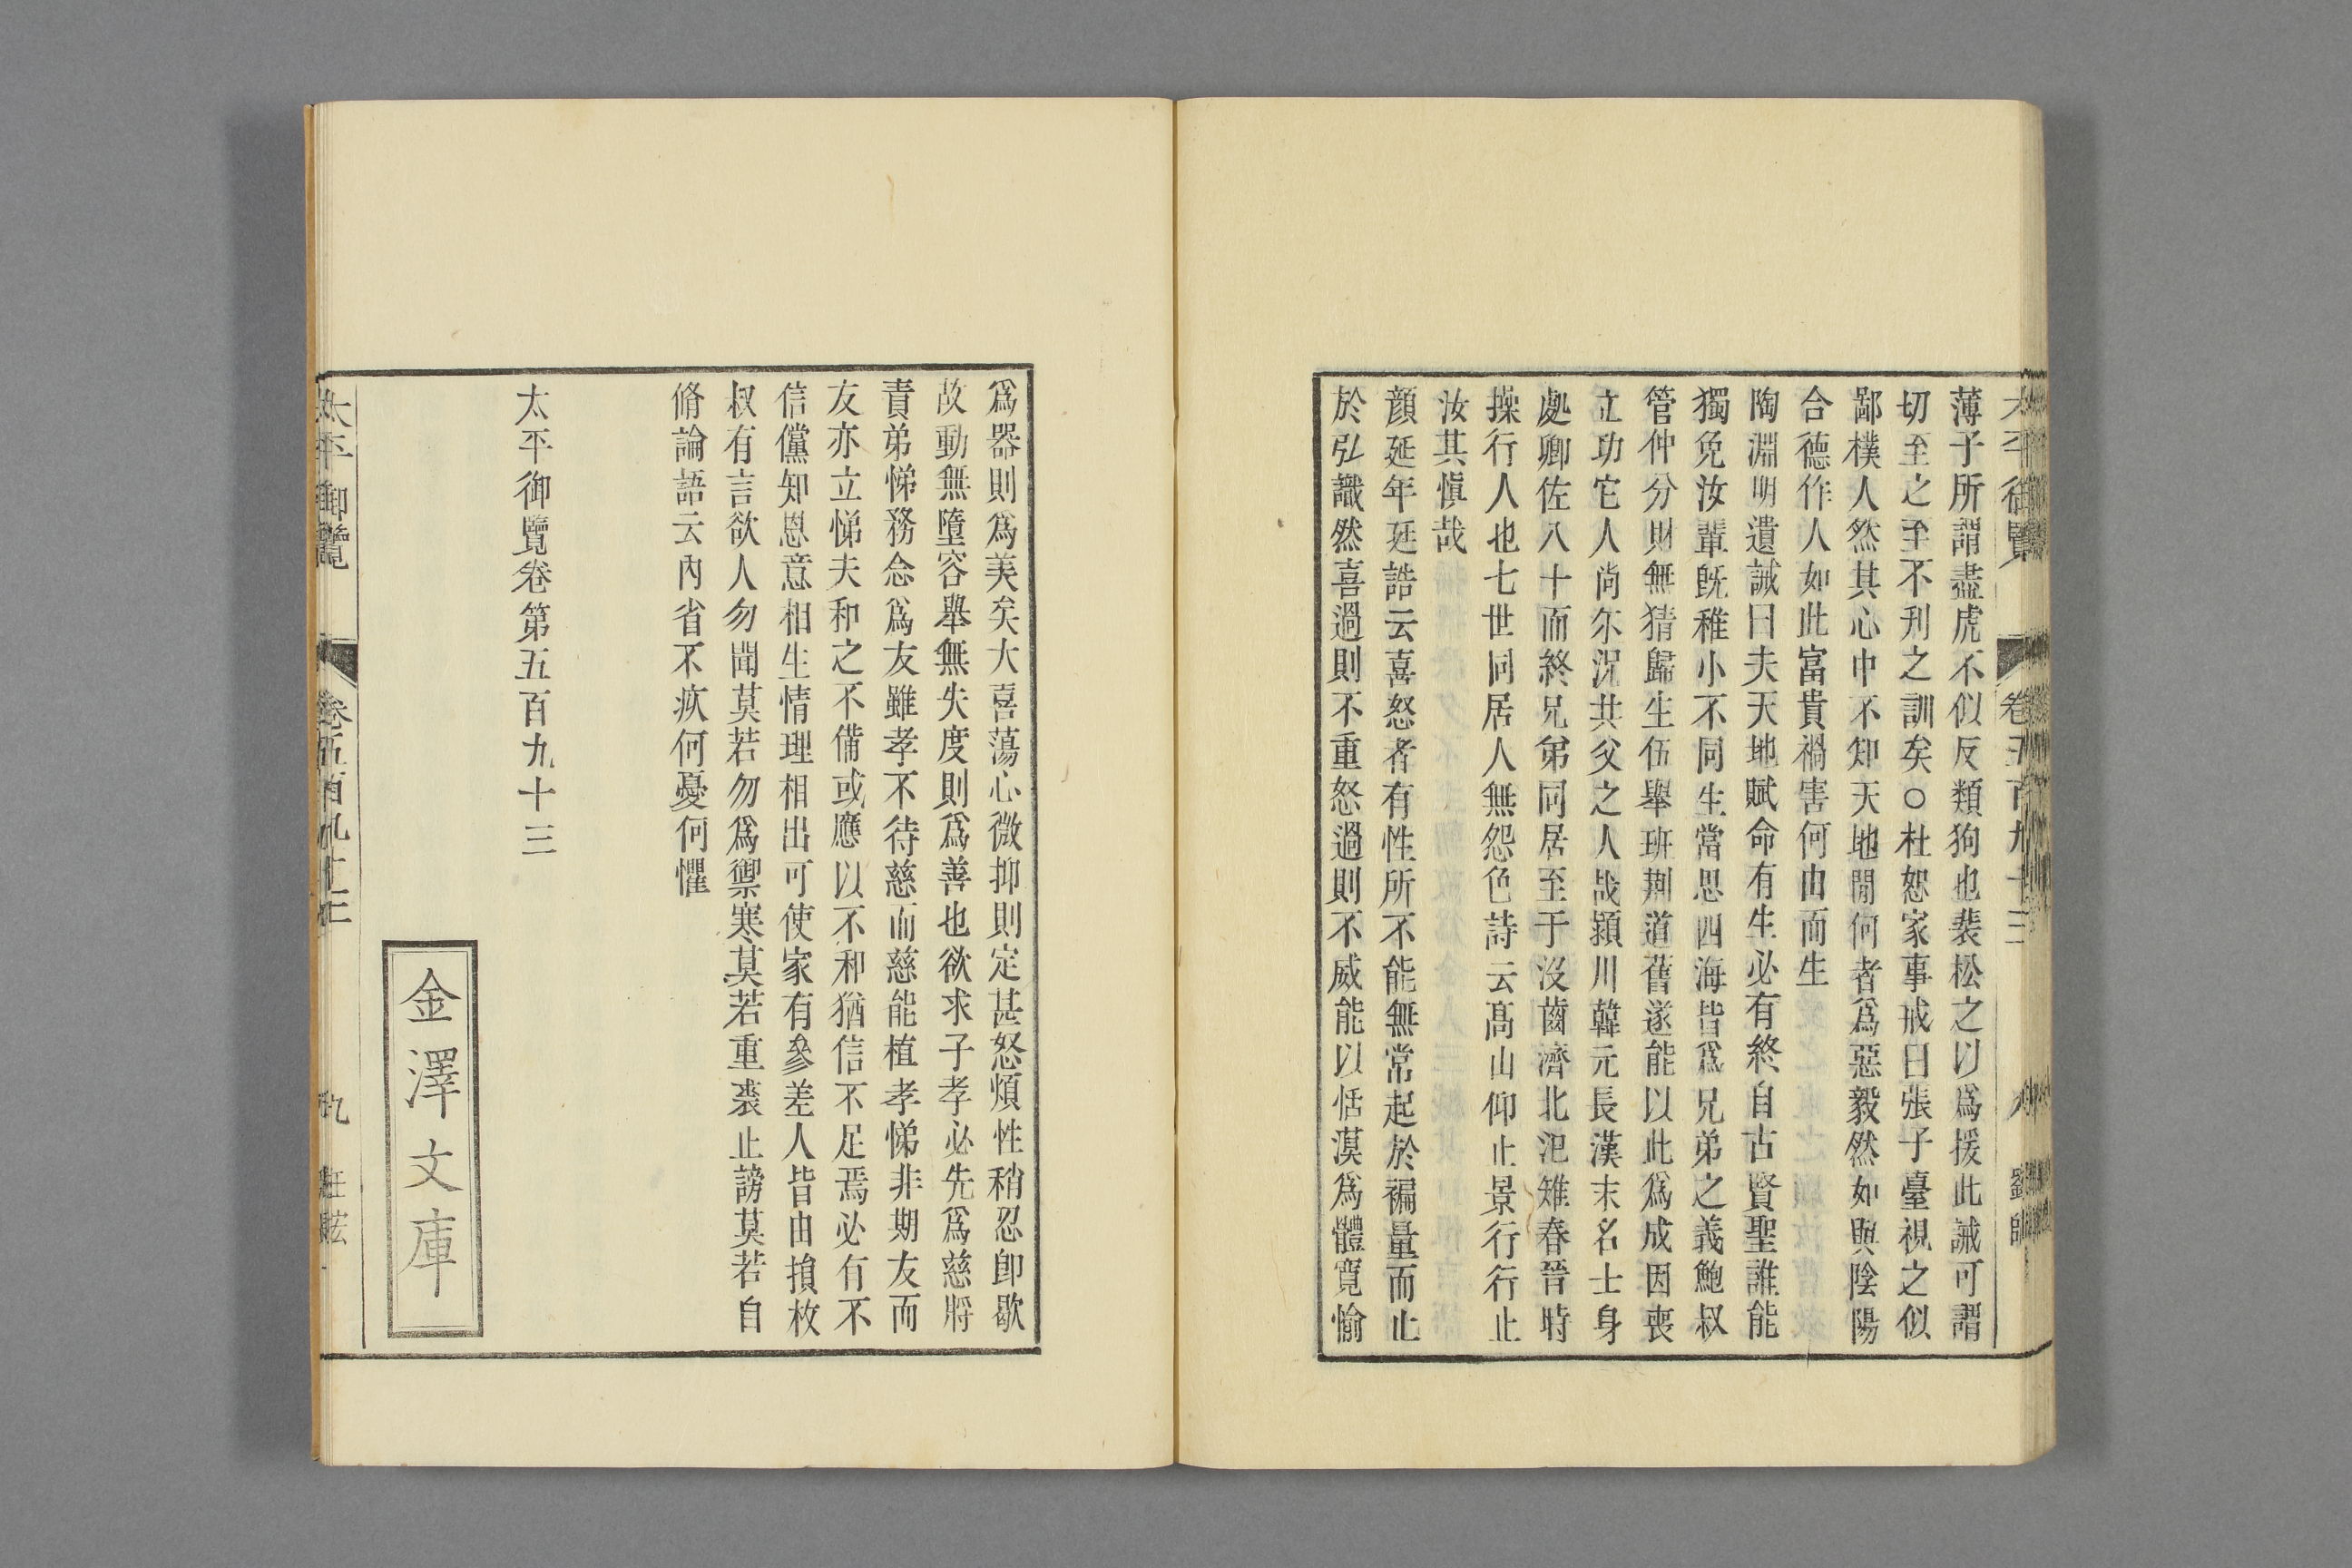 太平御覽 卷五百九十三 八 劉師
薄子所謂盡虎不似反類狗也裴松之以爲援此誡可謂
切至之至不刋之訓矣○杜恕家事戒曰張子臺視之似
鄙樸人然其心中不知天地閒何者爲惡毅然如與陰陽
合德作人如此富貴禍害何由而生
陶淵明遺誡曰夫天地賦命有生必有終自古賢聖誰能
獨免汝輩旣稚小不同生當思四海皆爲兄弟之義鮑叔
管仲分財無猜歸生伍舉班荆道舊遂能以此爲成因喪
立功它人尚尓況共父之人哉潁川韓元長漢末名士身
處卿佐八十而終兄弟同居至于沒齒濟北氾雉春晉時
操行人也七世同居人無怨色詩云髙山仰止景行行止
汝其愼哉
顔延年延誥云喜怒者有性所不能無常起於褊量而止
於弘識然喜過則不重怒過則不威能以恬漠爲體寬愉
爲器則爲美矣大喜蕩心微抑則定甚怒煩性稍忍卽歇
故動無墮容舉無失度則爲善也欲求子孝必先爲慈將
責弟悌務念爲友雖孝不待慈而慈能植孝悌非期友而
友亦立悌夫和之不備或應以不和猶信不足焉必有不
信儻知恩意相生情理相出可使家有參差人皆由損枚
叔有言欲人勿聞莫若勿爲禦寒莫若重裘止謗莫若自
脩論語云內省不疚何憂何懼
太平御覽卷第五百九十三
金澤文庫
太平御覽 卷五百九十三 九